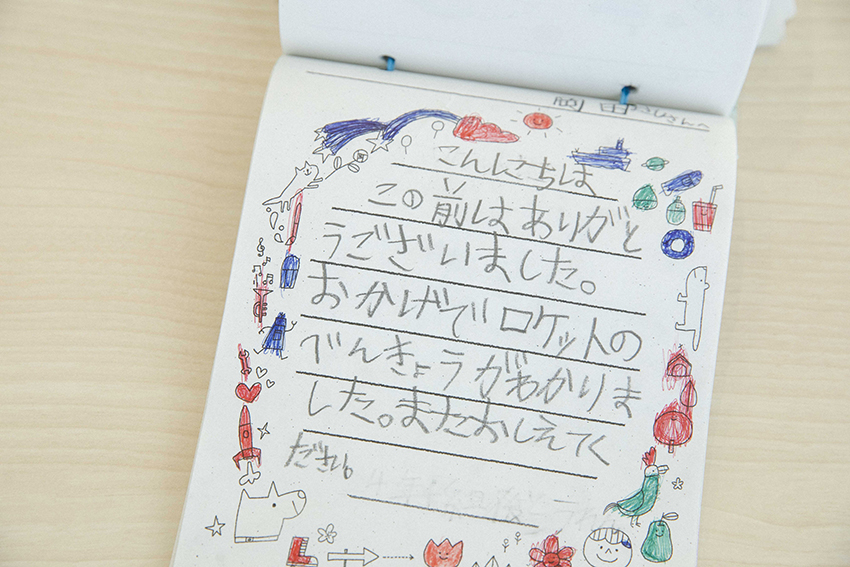 こんにちは
この前はありがと
うございました。
おかげでロケットの
べんきょうがわかりま
した。またおしえてく
ださい。